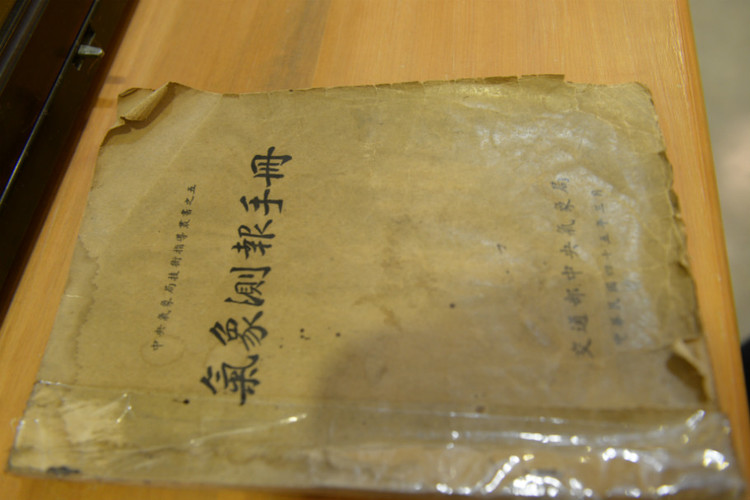 中央氣象局技術指導叢書之五
氣象測報手冊
交通部中央氣象局
中華民國四十五年三月